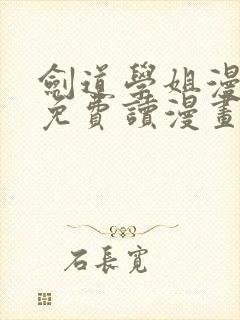 劍道學姐漫
免費讀漫畫
石長寬